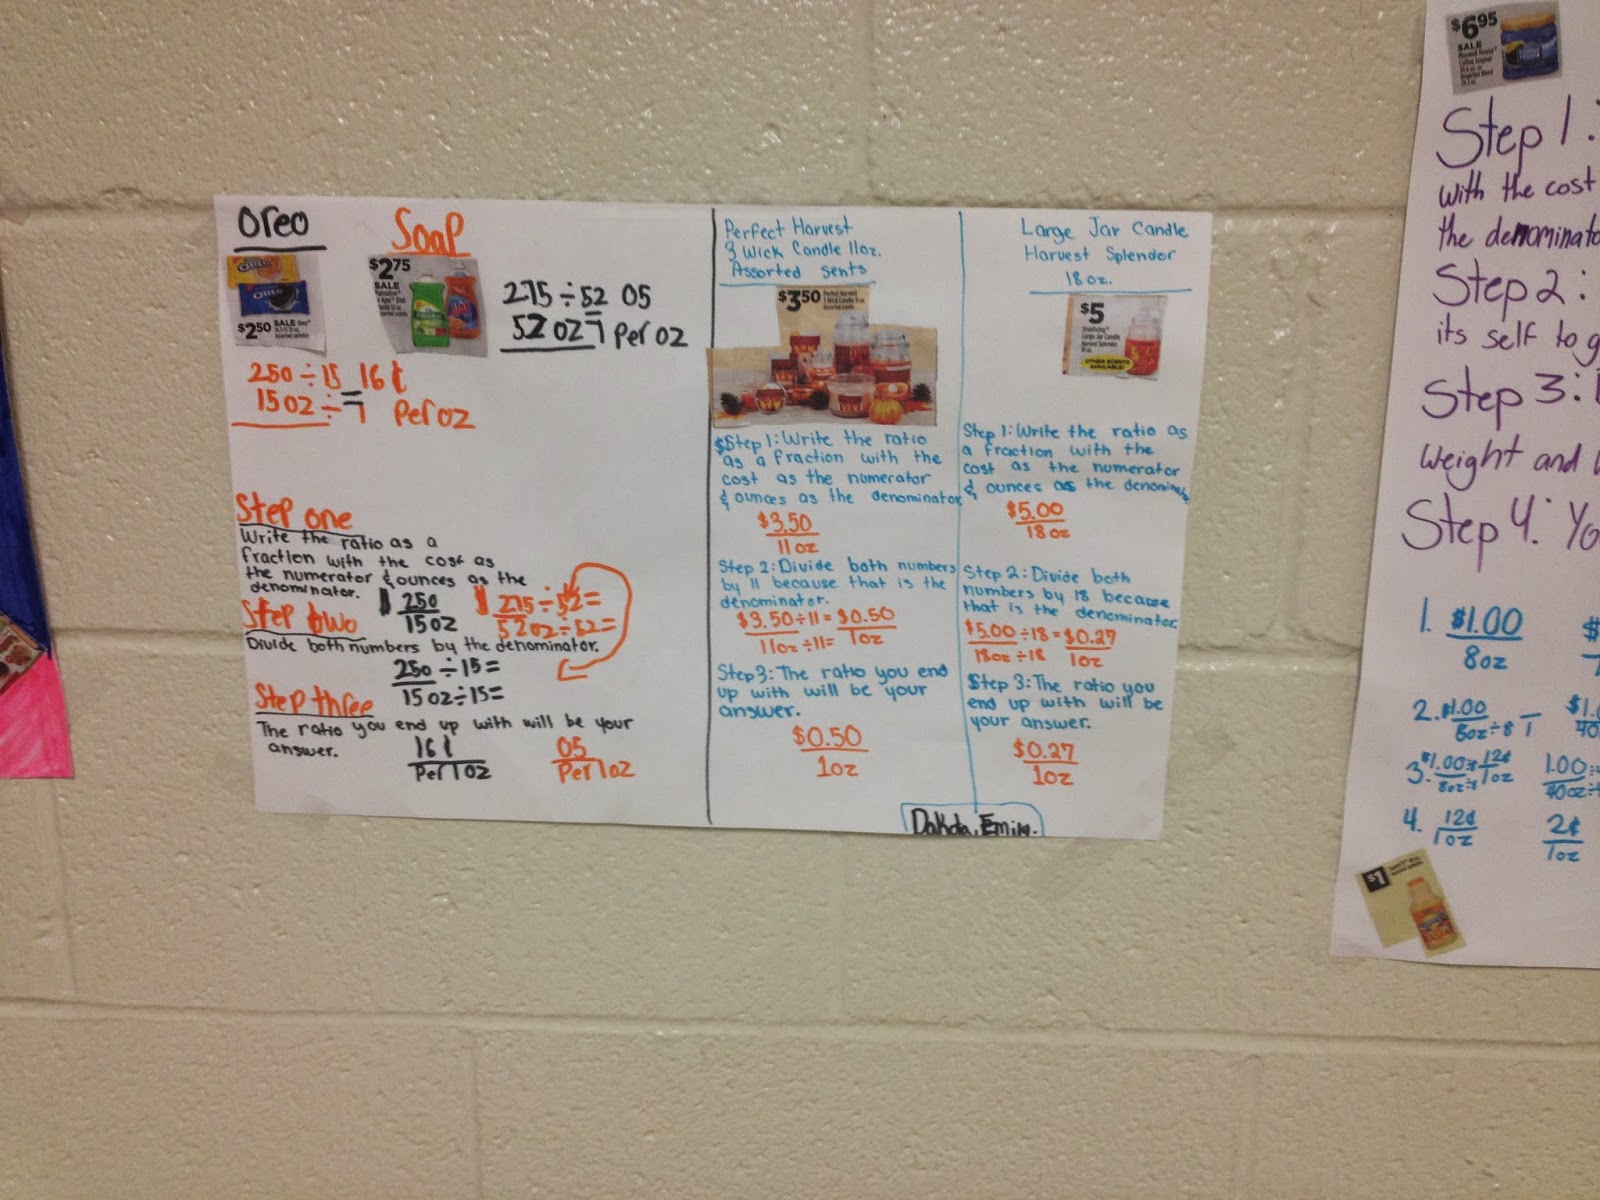 Oreo
Soap
OREO
OREO
$2.50 SALE
$2.75
SALE
275 ÷ 52 05
52 oz 1 Per oz
250 ÷ 15 16¢
15 oz ÷ 1 Per oz
Step one
Write the ratio as a
fraction with the cost as
the numerator & ounces as the
denominator.
250
15 oz
275 ÷ 52 =
52 oz ÷ 52 =
Step two
Divide both numbers by the denominator.
250 ÷ 15 =
15 oz ÷ 15 =
Step three
The ratio you end up with will be your
answer.
16¢
Per 1 oz
05
Per 1 oz
Perfect Harvest
3 Wick Candle 11oz.
Assorted sents
$3.50
$Step 1: Write the ratio
as a fraction with the
cost as the numerator
& ounces as the denominator
$3.50
11 oz
Step 2: Divide both numbers
by 11 because that is the
denominator.
$3.50 ÷ 11 = $0.50
11oz ÷ 11 = 1oz
Step 3: The ratio you end
up with will be your
answer.
$0.50
1oz
Large Jar Candle
Harvest Splendor
18 oz.
$5
Large Jar Candle
Harvest Splendor
OTHER SCENTS
AVAILABLE!
Step 1: Write the ratio as
a fraction with the
cost as the numerator
& ounces as the denomin
$5.00
18 oz
Step 2: Divide both
numbers by 18 because
that is the denominator.
$5.00 ÷ 18 = $0.27
18oz ÷ 18 1oz
Step 3: The ratio you
end up with will be
your answer.
$0.27
1oz
Dakota, Emily.
$6.95
SALE
Maxwell House
Step 1:
with the cost
the denominato
Step 2:
its self to g
Step 3:
weight and
Step 4: Yo
1. $1.00
8oz
2. $1.00
8oz ÷ 8 1
$1.
40
3. $1.00 ÷ 8 12¢
8oz ÷ 8 1oz
1.00 ÷
40oz ÷
4. 12¢
1oz
2¢
1oz
$1